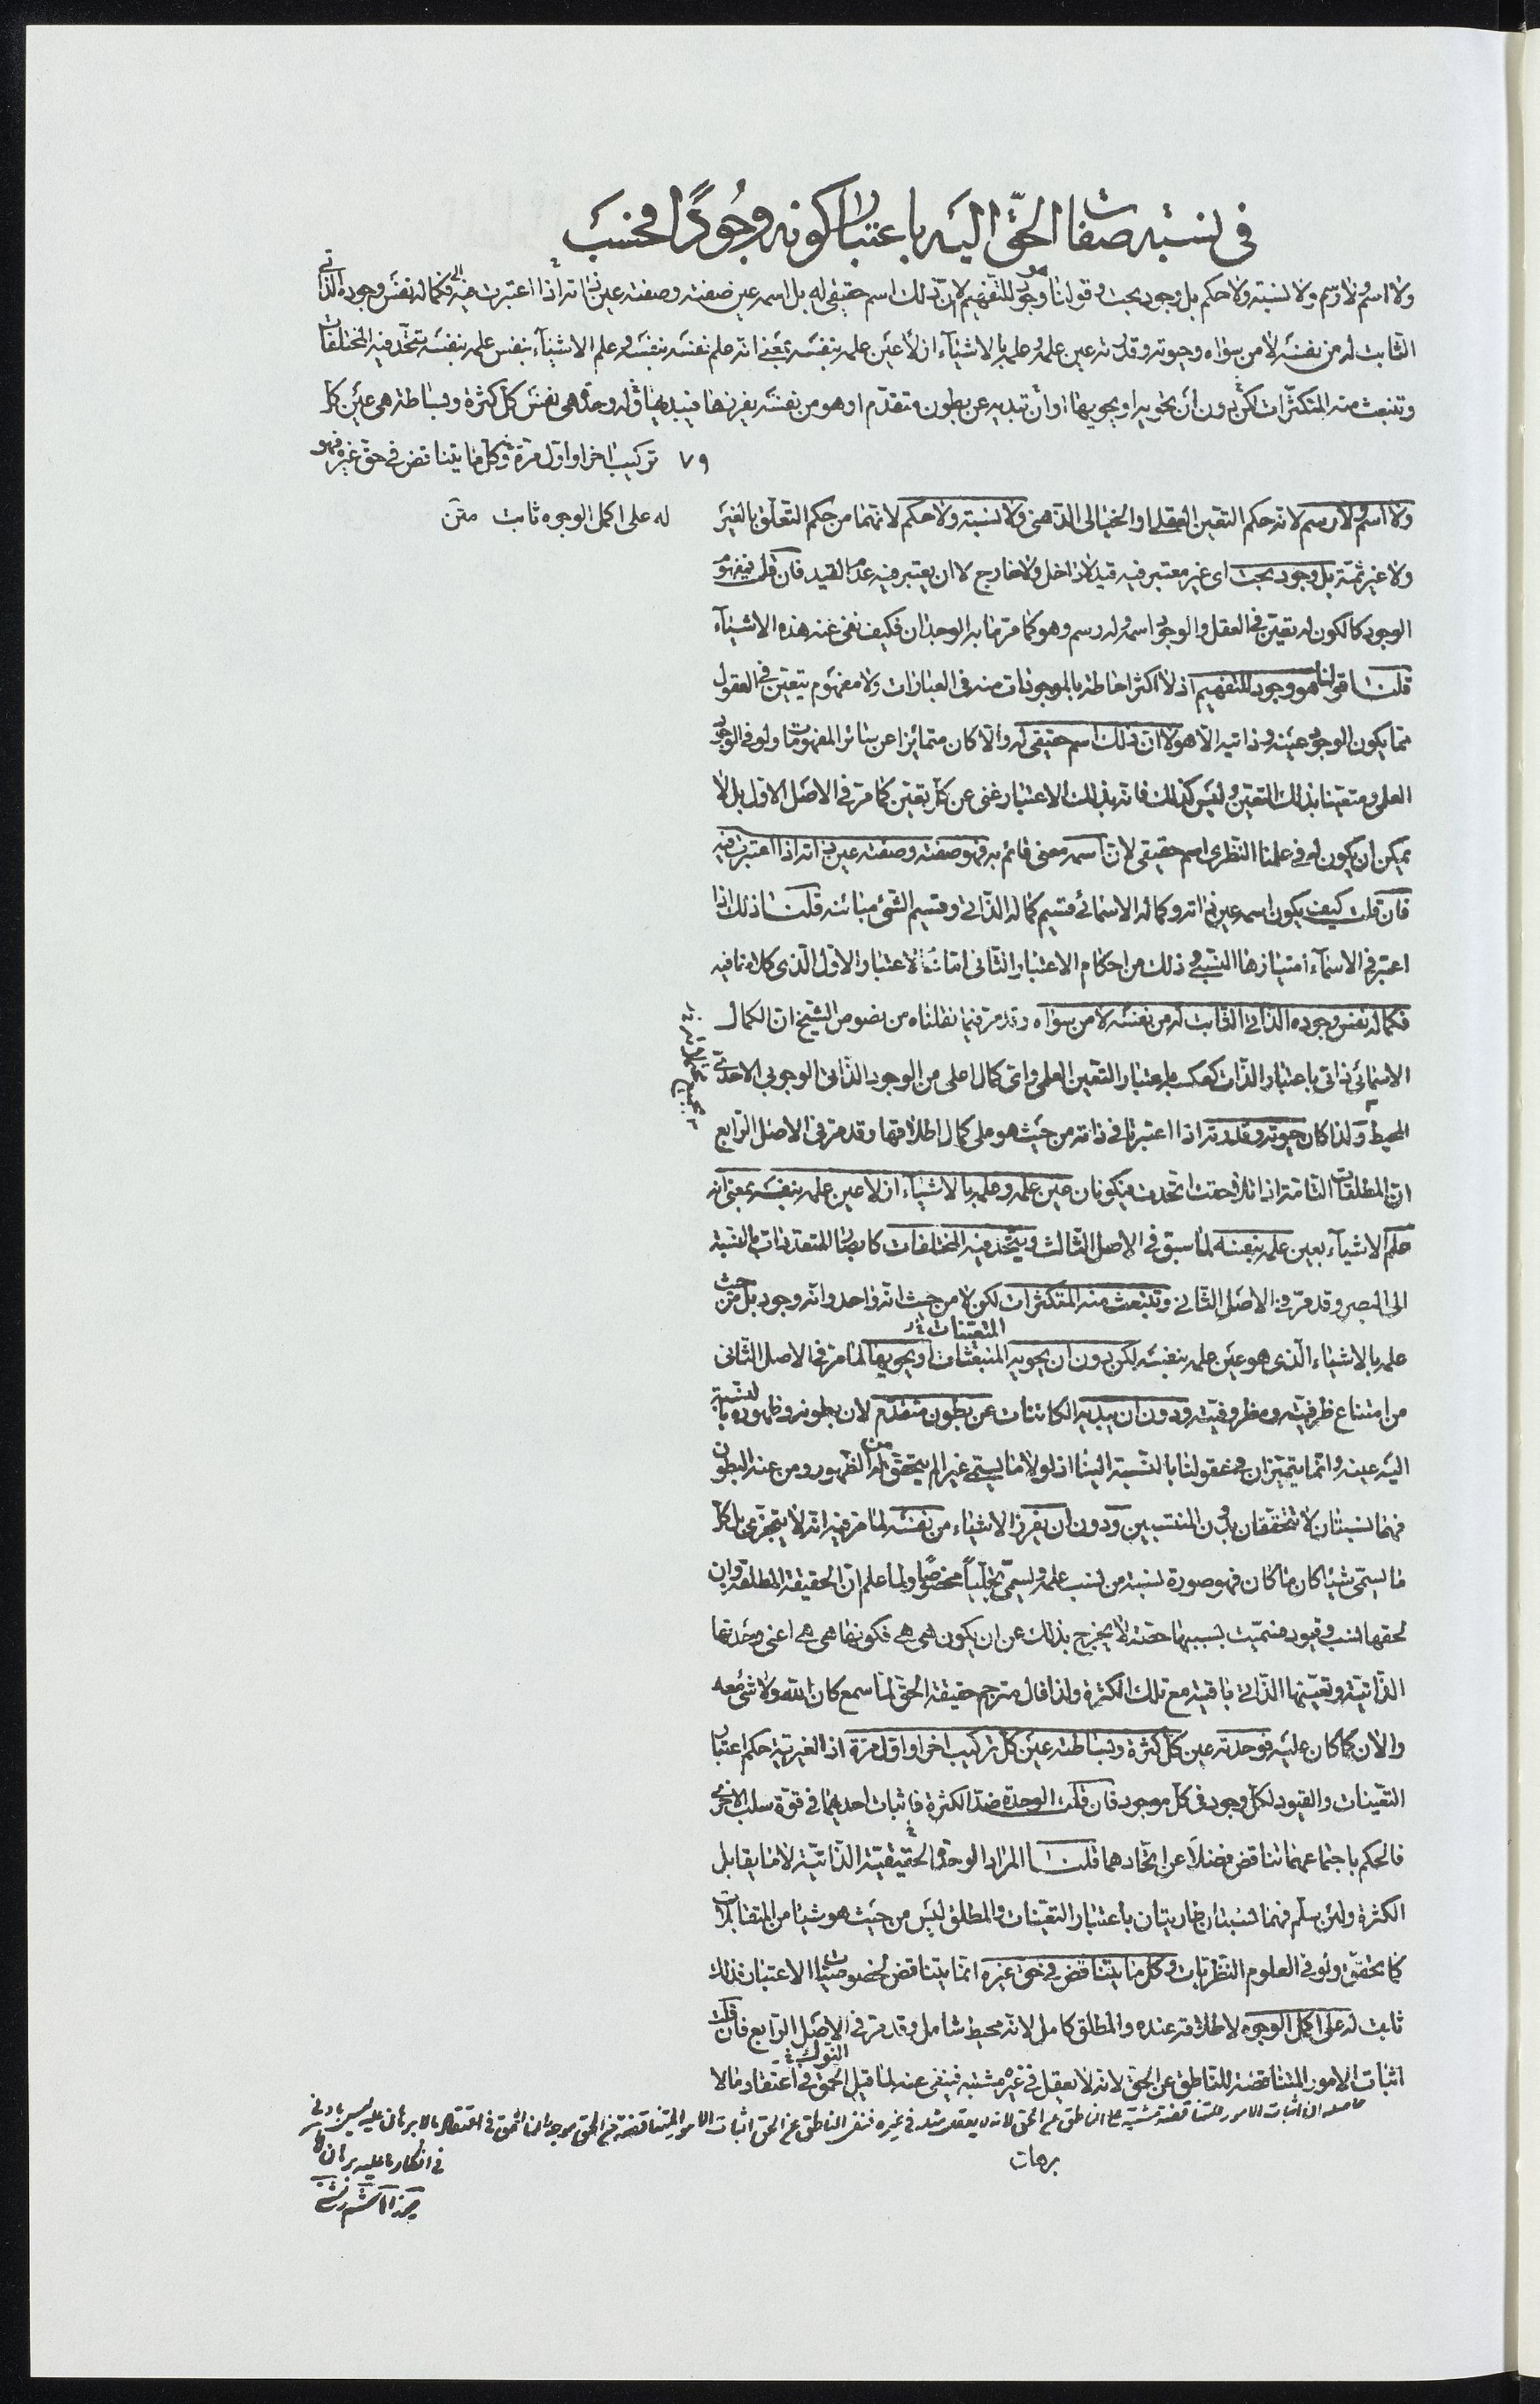 في نسبة صفات الحق اليه باعتبار كونه وجودا فحسب
ولا اسم ولا رسم ولا نسبة ولا حكم بل وجود بحت وقولنا هو وجود للتفهيم لا ان ذلك اسم حقيقي له بل اسمه عين صفته وصفته عين ذاته اذا اعتبرت فيه فكماله نفس وجوده الذاتي
الثابت له من نفسه لا من سواه وحيوته وقدرته عين علمه وعلمه بالاشياء ازلا عين علمه بنفسه بمعنى انه علم نفسه بنفسه وعلم الاشياء بنفس علمه بنفسه تتحد فيه المختلفات
وتنبعث منه المتكثرات لكن دون ان تحويه او يحويها او ان تبديه عن بطون متقدم او هو من نفسه يفرزها فيبديها وله وحدة هي نفس كل كثرة وبساطة هي عين كل
٧٩ تركيب اخرا واول مرة وكل ما يتناقض في حق غيره فهو
له على اكمل الوجوه ثابت متن
ولا اسم ولا رسم لانه حكم التعين العقلي او الخيالي الذهني ولا نسبة ولا حكم لانهما من حكم التعلق بالغير
ولا غير ثمة بل وجود بحت اي غير معتبر فيه قيد لا داخل ولا خارج لا ان يعتبر فيه عدم القيد فان قلت فمفهوم
الوجود كالكون له تعين في العقل والوجود اسم وله رسم وهو كما مر ما به الوجدان فكيف نفى عنه هذه الاشياء
قلنا قولنا هو وجود للتفهيم اذ لا اكثر احاطة بالموجودات منه في العبارات ولا مفهوم يتعين في العقول
مما يكون الوجود عينه وذاتيه الا هو لا ان ذلك اسم حقيقي له والا كان متمايزا عن سائر المفهومات ولو في الوجود
العلمي ومتعينا بذلك التعين وليس كذلك فانه بذلك الاعتبار غني عن كل تعين كما مر في الاصل الاول بل لا
يمكن ان يكون له في علمنا النظري اسم حقيقي لان اسمه معنى قائم به فهو صفته وصفته عين ذاته اذا اعتبرت فيه
فان قلت كيف يكون اسمه عين ذاته وكماله الاسمائي قسيم كماله الذاتي وقسيم الشيء مباينه قلنا ذلك اذا
اعتبر في الاسماء امتيازها النسبي وذلك من احكام الاعتبار الثاني اما الاعتبار الاول الذي كلامنا فيه
فكماله نفس وجوده الذاتي الثابت له من نفسه لا من سواه وقد مر فيما نقلناه من نصوص الشيخ ان الكمال
الاسمائي ذاتي باعتبار الذات كعكسه باعتبار التعين العلمي واي كمال اعلى من الوجود الذاتي الوجوبي الاحدي
المحيط ولذا كان حيوته وقدرته اذا اعتبرتا في ذاته من حيث هو على كمال اطلاقها وقد مر في الاصل الرابع
ان المطلقات التامة اذا تلاحقت اتحدت فيكونان عين علمه وعلمه بالاشياء ازلا عين علمه بنفسه بمعنى انه
علم الاشياء بعين علمه بنفسه لما سبق في الاصل الثالث وتتحد فيه المختلفات كابصار المتعددات بالنسبة
الى البصير وقد مر في الاصل الثاني وتنبعث منه المتكثرات لكن لا من حيث انه واحد وانه وجود بل من حيث
علمه بالاشياء الذي هو عين علمه بنفسه لكن دون ان يحويه المنبعثات المتعينات او يحويها لما مر في الاصل الثاني
من امتناع ظرفيته ومظروفيته ودون ان يبديه الكائنات عن بطون متقدم لان بطونه وظهوره بالنسبة
اليه عينه وانما يتميزان في عقولنا بالنسبة الينا اذ لولا ما يسمى غيرا لم يتحقق من له الظهور ومن عنه البطون
فهما نسبتان لا تتحققان بدون المنتسبين ودون ان يفرز الاشياء من نفسه لما مر فيه انه لا يتجزى بل كل
ما يسمى شيئا كان ما كان فهو صورة نسبة من نسب علمه ويسمى تجليا مخصوصا ولما علم ان الحقيقة المطلقة وان
لحقها نسب وقيود فسميت بسببها حصة لا يخرج بذلك عن ان يكون هي هي فكونها هي هي اعني وحدتها
الذاتية وتعينها الذاتي باقية مع تلك الكثرة ولذا قال مترجم حقيقة الحق لما سمع كان الله ولا شيء معه
والان كما كان عليه فوحدته عين كل كثرة وبساطته عين كل تركيب اخرا واول مرة اذ الغيرية حكم اعتبار
التعينات والقيود لكل وجود في كل موجود فان قلت الوحدة ضد الكثرة فاثبات احديهما في قوة سلب الاخرى
فالحكم باجتماعهما تناقض فضلا عن اتحادهما قلنا المراد الوحدة الحقيقية الذاتية لا ما يقابل
الكثرة ولئن سلم فهما نسبتان عاريتان باعتبار التعينات والمطلق ليس من حيث هو شيئا من المتقابلات
كما تحقق ولو في العلوم النظريات وكل ما يتناقض في حق غيره انما يتناقض لخصوصيات الاعتبار فذلك
ثابت له على اكمل الوجوه لاطلاقه عنده والمطلق كامل لانه محيط شامل وقد مر في الاصل الرابع فان قلت
اثبات الامور المتناقضة للناطق عن الحق لانه لا يعقل في غيره مشتبه فينفى عنه لما قيل الحمق في اعتقاد ما لا
برهان